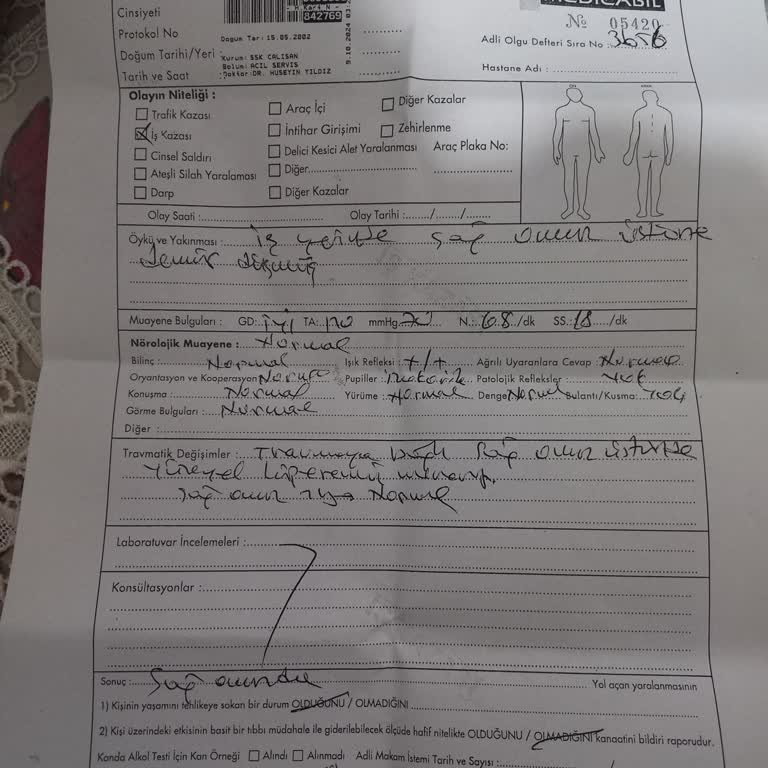 MEDICABIL
Cinsiyeti
842769
9.10.2024
Nº 05420
Protokol No
Dogum Tar: 15.05.2002
Adli Olgu Defteri Sıra No : 3656
Doğum Tarihi/Yeri
Kurum: SSK CALISAN
Bolum: ACIL SERVIS
Doktor: DR. HUSEYIN YILDIZ
Hastane Adı :
Tarih ve Saat
Olayın Niteliği :
Trafik Kazası
Araç İçi
Diğer Kazalar
İş Kazası
İntihar Girişimi
Zehirlenme
Cinsel Saldırı
Delici Kesici Alet Yaralanması
Araç Plaka No:
Ateşli Silah Yaralaması
Diğer
Darp
Diğer Kazalar
Olay Saati :
Olay Tarihi :....../....../.......
Öykü ve Yakınması : iş yerinde sağ omuz üstüne
demir düşmüş
Muayene Bulguları : GD: iyi TA: 120 mmHg 70 N.: 68 /dk SS.: 18 /dk
Nörolojik Muayene : Normal
Bilinç : Normal Işık Refleksi : +/+ Ağrılı Uyaranlara Cevap Normal
Oryantasyon ve Kooperasyon Normal Pupiller : izokorik Patolojik Refleksler yok
Konuşma : Normal Yürüme : Normal Denge Normal Bulantı/Kusma: yok
Görme Bulguları : Normal
Diğer :
Travmatik Değişimler : Travmaya bağlı sağ omuz üstünde
yüzeyel hiperemi mevcut.
sağ omuz Normal
Laboratuvar İncelemeleri :
Konsültasyonlar :
Sonuç : Sağ omuzda Yol açan yaralanmasının
1) Kişinin yaşamını tehlikeye sokan bir durum OLDUĞUNU / OLMADIĞINI
2) Kişi üzerindeki etkisinin basit bir tıbbı müdahale ile giderilebilecek ölçüde hafif nitelikte OLDUĞUNU / OLMADIĞINI kanaatini bildiri raporudur.
Kanda Alkol Testi İçin Kan Örneği Alındı Alınmadı Adli Makam İstemi Tarih ve Sayısı :